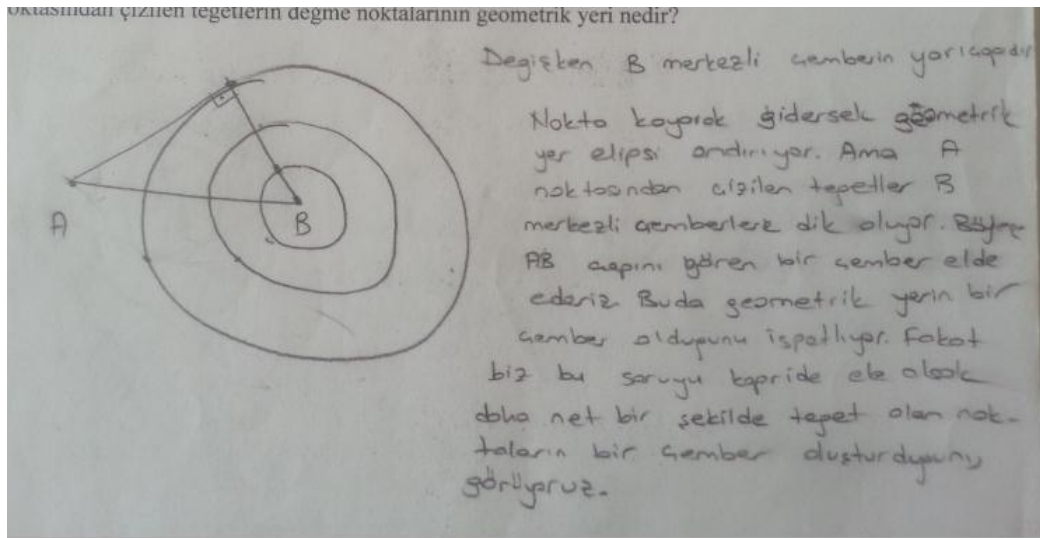 oktasından çizilen teğetlerin değme noktalarının geometrik yeri nedir?
Değişken B merkezli çemberin yarıçapıdır
Nokta koyarak gidersek geometrik
yer elipsi andırıyor. Ama A
noktasından çizilen teğetler B
merkezli çemberlere dik oluyor. Böylece
AB çapını gören bir çember elde
ederiz. Buda geometrik yerin bir
çember olduğunu ispatlıyor. Fakat
biz bu soruyu kapride ele alsak
daha net bir şekilde teğet olan nok-
taların bir çember oluşturduğunu
görüyoruz.
A
B